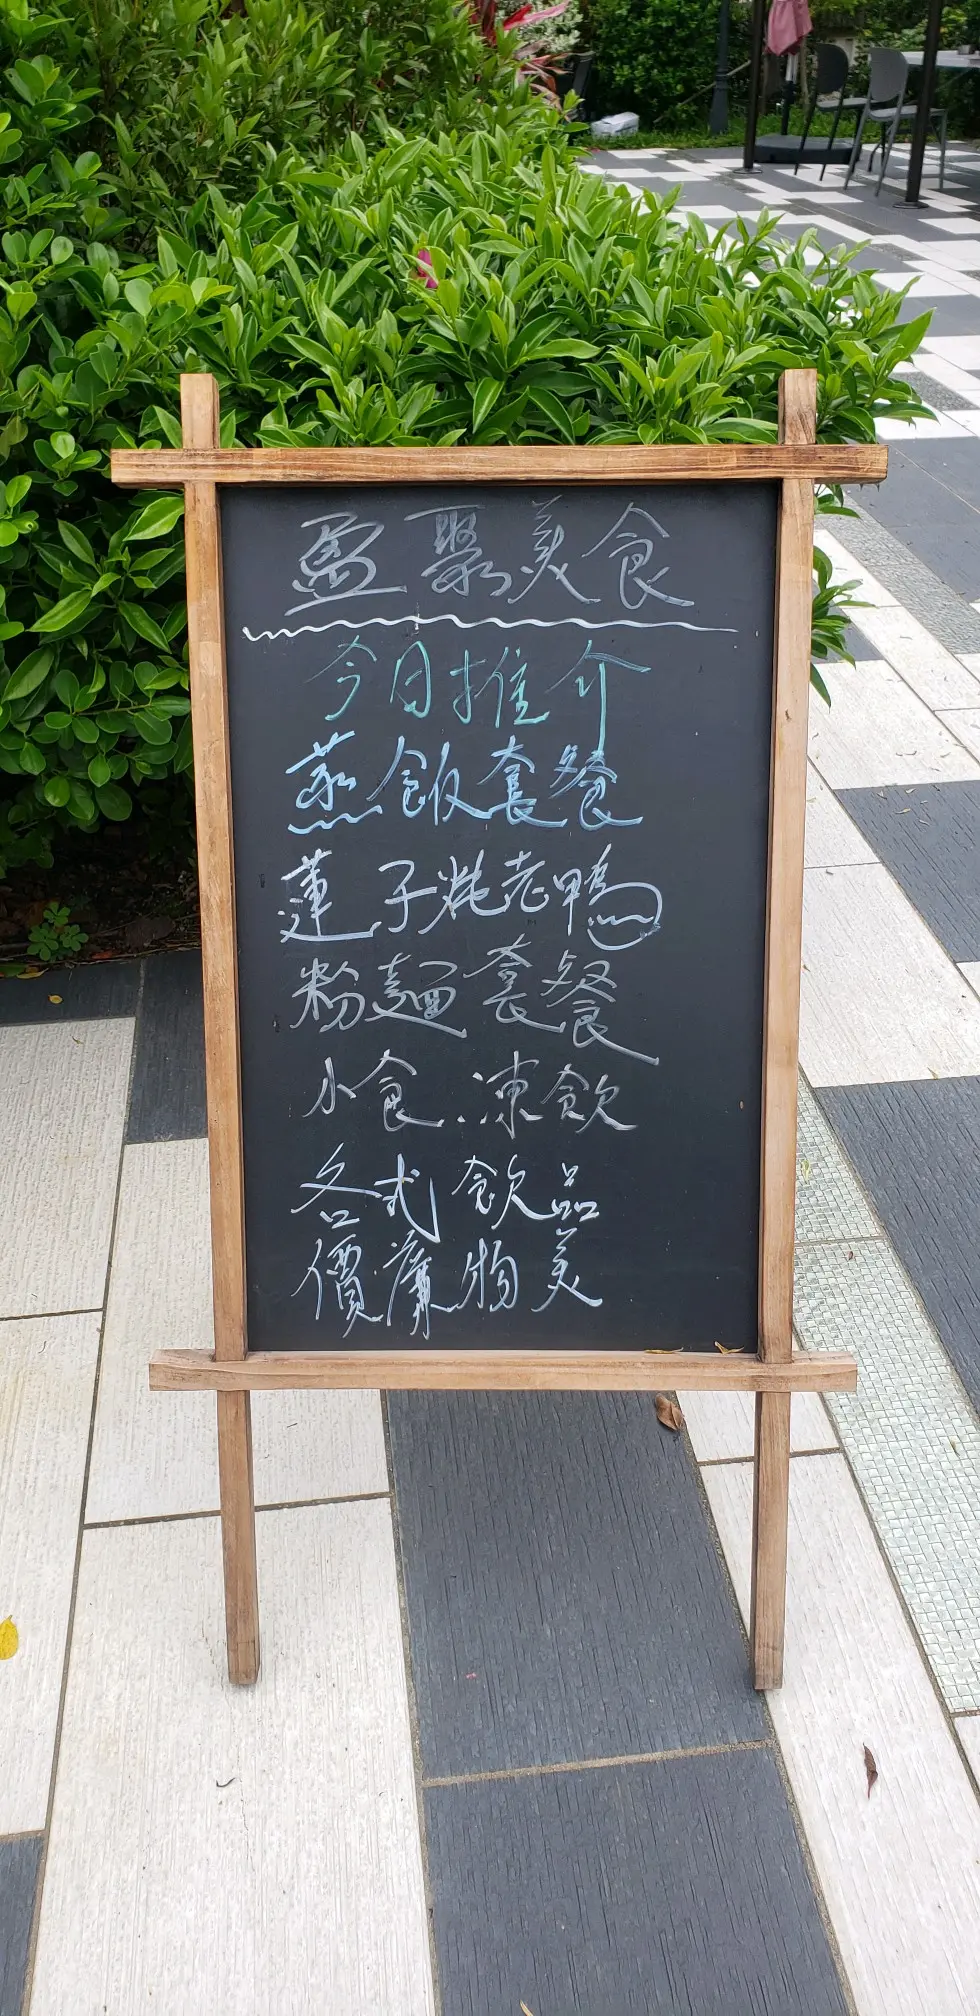 盈聚美食
今日推介
蒸飯套餐
蓮子炖老鴨
粉麵套餐
小食、凍飲
各式飲品
價廉物美